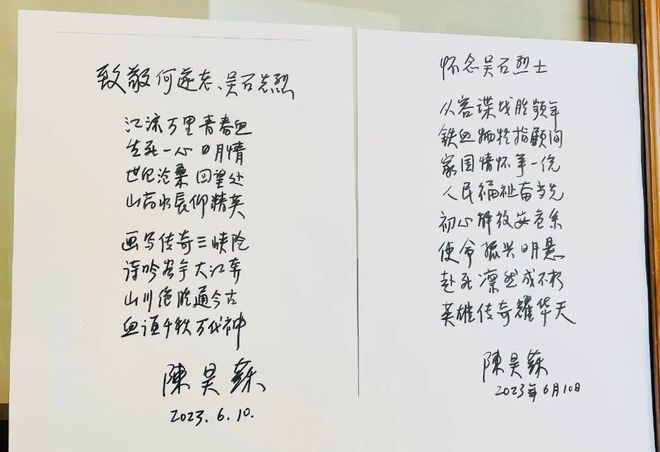 致敬何遂老、吴石先烈
江流万里青春血
生死一心日月情
世纪沧桑回望处
山高水长仰精英
画写传奇三峡险
诗吟岩宇大江奔
山川绝胜通今古
血洒千秋万代神
陳昊蘇
2023.6.10.
怀念吴石烈士
从容谍战胜领年
铁血牺牲指顾间
家国情怀第一优
人民福祉奋当先
初心解放安危系
使命振兴日月悬
赴死凛然成不朽
英雄传奇耀华天
陳昊蘇
2023年6月10日